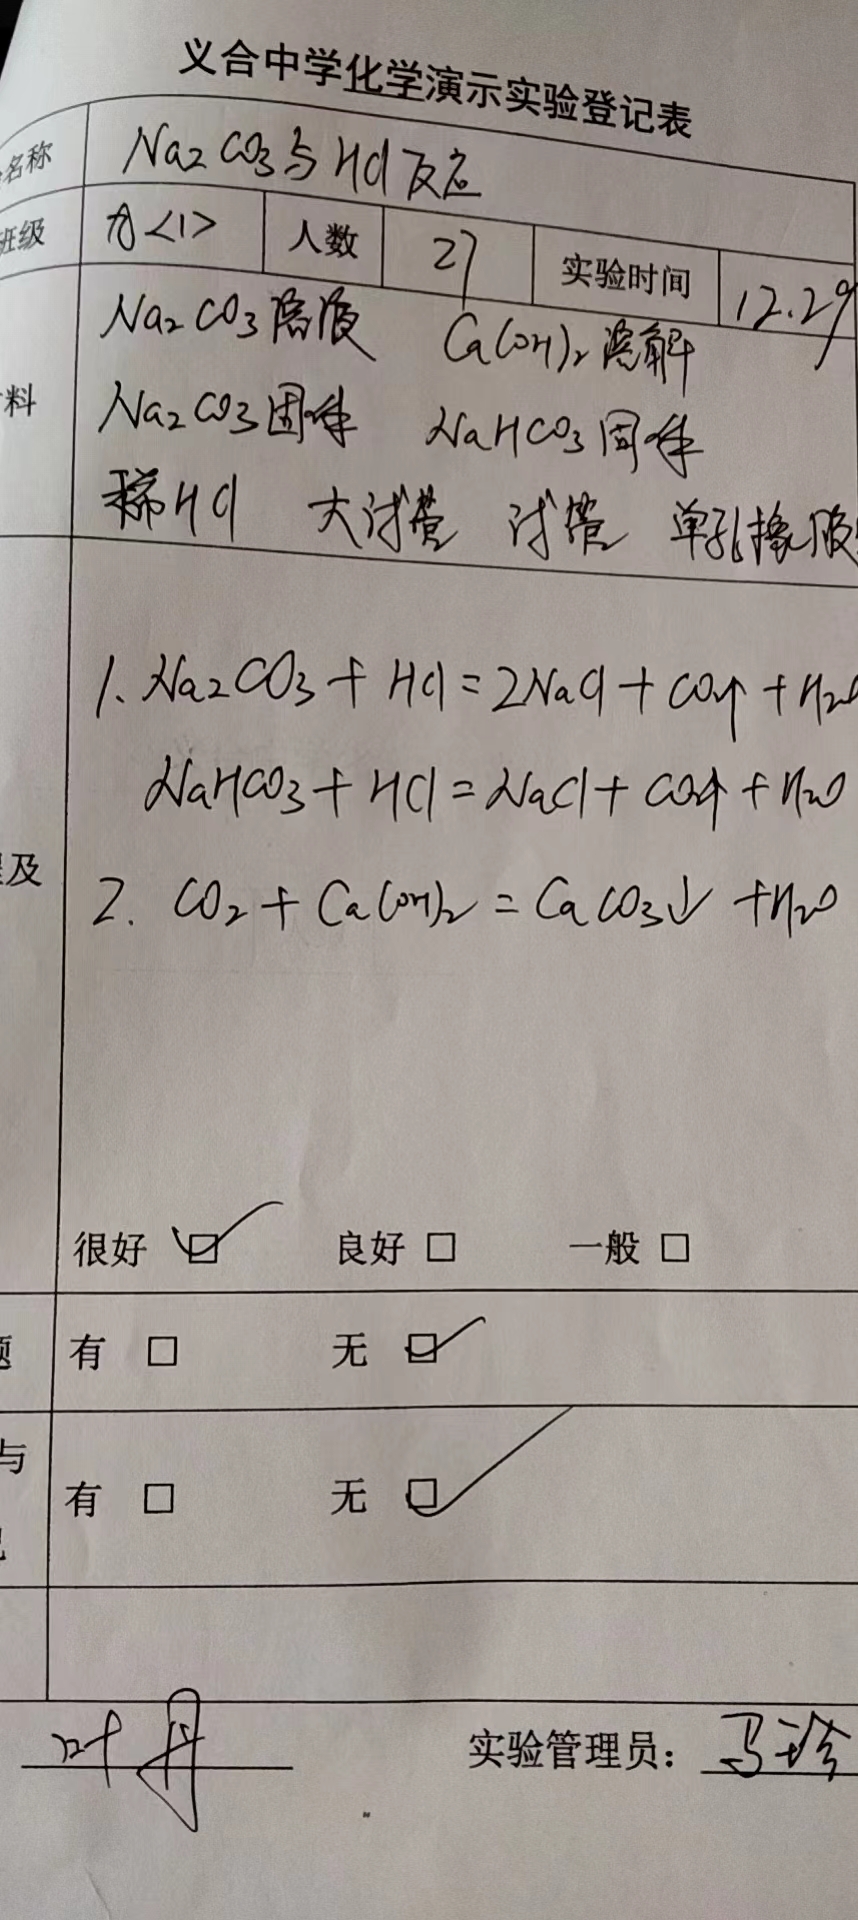 义合中学化学演示实验登记表
名称 Na2CO3与HCl反应
班级 九<1> 人数 27 实验时间 12.29
Na2CO3溶液 Ca(OH)2溶解
料 Na2CO3固体 NaHCO3固体
稀HCl 大试管 试管 单孔橡胶
1. Na2CO3 + HCl = 2NaCl + CO2↑ + H2O
NaHCO3 + HCl = NaCl + CO2↑ + H2O
及
2. CO2 + Ca(OH)2 = CaCO3↓ + H2O
很好 ☑ 良好 □ 一般 □
题 有 □ 无 ☑
与
有 □ 无 ☑
叶丹 实验管理员：马珍